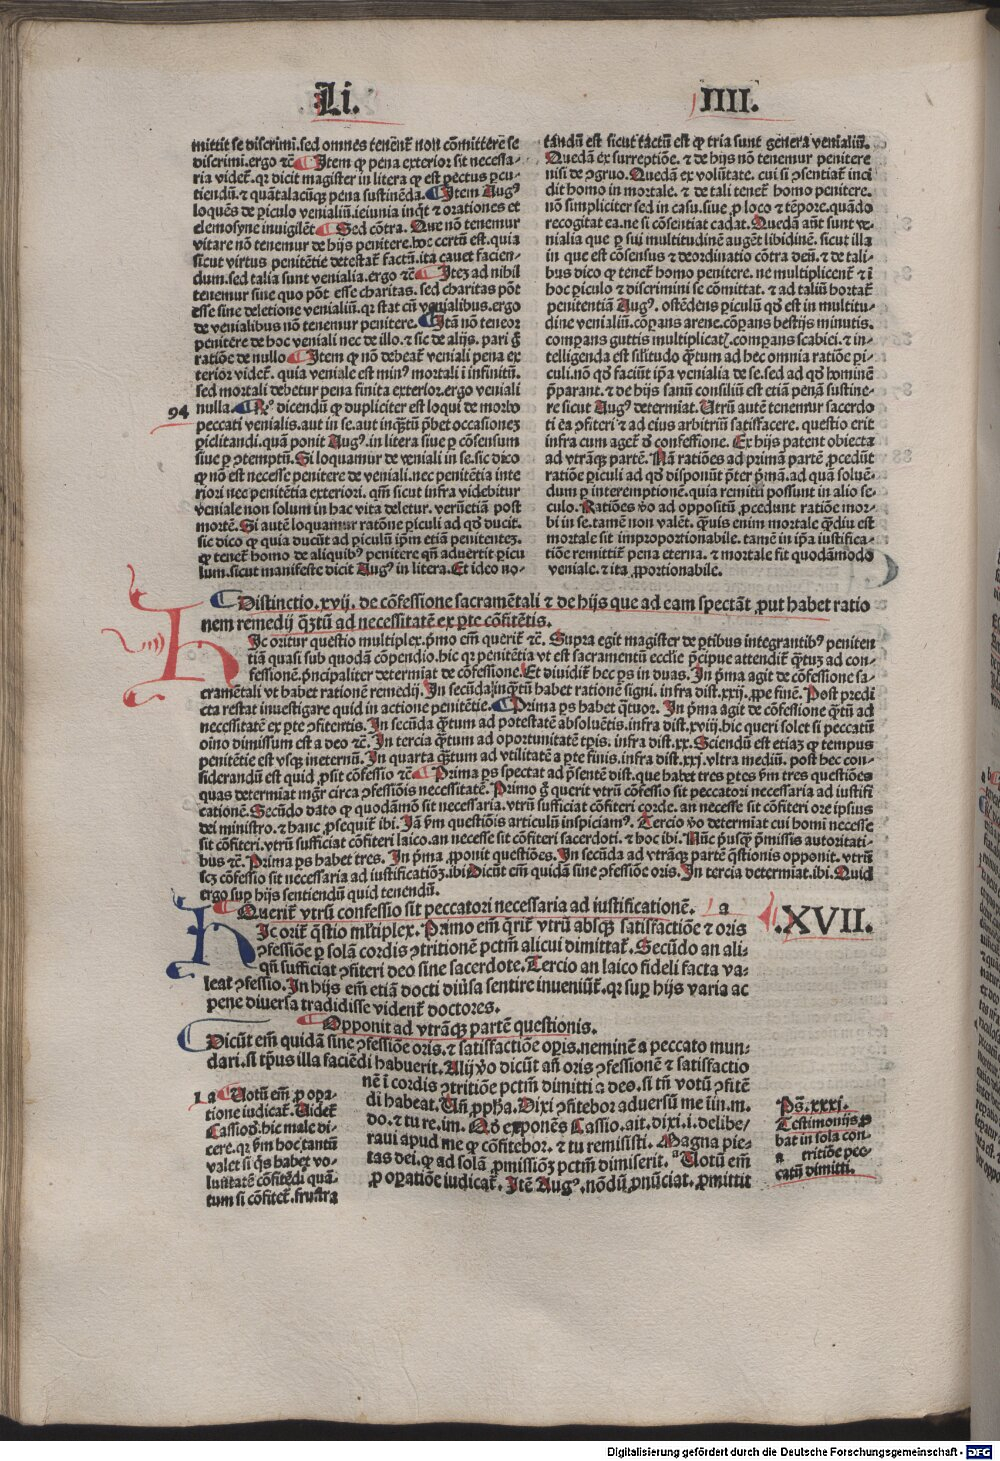 Li. IIII.
mittit se discrimi. sed omnes tenent̃ non cõmittere se
discrimi. ergo ⁊c̃ Item ꝙ pena exterior sit necessa-
ria videt̃. qr dicit magister in litera ꝙ est pectus ꝑcu-
tiendũ. ⁊ quãtalacũqꝫ pena sustinẽda. Item Augꝰ
loquẽs de ꝑiculo venialiũ. ieiunia inqt̃ ⁊ orationes et
elemosyne invigilẽt Sed cõtra. Que nõ tenemur
vitare nõ tenemur de hijs penitere. hoc certũ est. quia
sicut virtus penitẽtie detestat̃ factũ. ita cavet facien-
dum. sed talia sunt venialia. ergo ⁊c̃ Iteꝫ ad nihil
tenemur sine quo põt esse charitas. sed charitas põt
esse sine deletione venialiũ. qr stat cũ venialibus. ergo
de venialibus nõ tenemur penitere. Itẽ nõ teneor
penitere de hoc veniali nec de illo. ⁊ sic de alijs. pari g̃
ratiõe de nullo Item ꝙ nõ debeat̃ veniali pena ex
terior videt̃. quia veniale est minꝰ mortali ĩ infinitũ.
sed mortali debetur pena finita exterior. ergo veniali
94 nulla. Rꝰ dicendũ ꝙ dupliciter est loqui de morbo
peccati venialis. aut in se. aut inqꝫtũ p̃bet occasioneꝫ
ꝑiclitandi. quã ponit Augꝰ. in litera sive ꝑ cõsensum
sive ꝑ ꝯtemptũ. Si loquamur de veniali in se. sic dico
ꝙ nõ est necesse penitere de veniali. nec penitẽtia inte
riori nec penitẽtia exteriori. qm̃ sicut infra videbitur
veniale non solum in hac vita deletur. verũetiã post
mortẽ. Si autẽ loquamur ratõne ꝑiculi ad qd̃ ducit.
sic dico ꝙ quia ducũt ad ꝑiculũ ip̃m etiã penitenteꝫ.
ꝙ tenet̃ homo de aliquibꝰ penitere qñ advertit ꝑicu
lum. sicut manifeste dicit Augꝰ in litera. Et ideo no-
tandũ est sicut tactũ est ꝙ tria sunt genera venialiũ.
Quedã ex surreptiõe. ⁊ de hijs nõ tenemur penitere
nisi de ꝯgruo. Quedã ex volũtate. cui si ꝯsentiat̃ inci
dit homo in mortale. ⁊ de tali tenet̃ homo penitere.
nõ simpliciter sed in casu. sive ꝓ loco ⁊ tẽpore. quãdo
recogitat ea. ne si cõsentiat cadat. Quedã aũt sunt ve-
nialia que ꝑ sui multitudinẽ augẽt libidinẽ. sicut illa
in que est cõsensus ⁊ deordinatio cõtra deũ. ⁊ de tali-
bus dico ꝙ tenet̃ homo penitere. ne multiplicent̃ ⁊ ĩ
hoc ꝑiculo ⁊ discrimini se cõmittat. ⁊ ad taliũ hortat̃
penitentiã Augꝰ. ostẽdens ꝑiculũ qd̃ est in multitu-
dine venialiũ. cõꝑans arene. cõꝑans bestijs minutis.
comꝑans guttis multiplicat̃. comꝑans scabiei. ⁊ in-
telligenda est silitudo qꝫtum ad hec omnia ratiõe ꝑi-
culi. nõ qd̃ faciũt ip̃a venialia de se. sed ad qd̃ hominẽ
p̃parant. ⁊ de hijs sanũ consiliũ est etiã penã sustine-
re sicut Augꝰ determiat. Utrũ autẽ tenemur sacerdo
ti ea ꝯfiteri ⁊ ad eius arbitriũ satisfacere. questio erit
infra cum aget̃ d̃ confessione. Ex hijs patent obiecta
ad utrãqꝫ partẽ. Nã ratiões ad primã partẽ ꝓcedũt
ratiõe ꝑiculi ad qd̃ disponũt p̃ter p̃mã. ad quã solvẽ-
dum ꝑ interemptionẽ. quia remitti possunt in alio se-
culo. Ratiões v̊o ad oppositũ ꝓcedunt ratiõe mor-
bi in se. tamẽ non valẽt. qꝫvis enim mortale qꝫdiu est
mortale sit improportionabile. tamẽ in ip̃a iustifica-
tiõe remittit̃ pena eterna. ⁊ mortale fit quodãmodo
veniale. ⁊ ita ꝓportionabile.
Distinctio. xvij. de cõfessione sacramẽtali ⁊ de hijs que ad eam spectãt ꝓut habet ratio
nem remedij qꝫtũ ad necessitatẽ ex ꝑte cõfitẽtis.
HIc oritur questio multiplex. p̃mo em̃ querit̃ ⁊c̃. Supra egit magister de ꝑtibus integrantibꝰ peniten
tiã quasi sub quodã cõpendio. hic qr penitẽtia ut est sacramentũ ecclie p̃cipue attendit̃ qꝫtuꝫ ad con-
fessionẽ. p̃ncipaliter determiat de cõfessione. Et dividit̃ hec ps in duas. In p̃ma agit de cõfessione sa-
cramẽtali ut habet rationẽ remedij. In secũda inqꝫtũ habet rationẽ signi. infra dist. xxij. ꝓpe finẽ. Post predi
cta restat investigare quid in actione penitẽtie. Prima ps habet qꝫtuor. In p̃ma agit de cõfessione qꝫtũ ad
necessitatẽ ex ꝑte ꝯfitentis. In secũda qꝫtum ad potestatẽ absolvẽtis. infra dist. xviij. hic queri solet si peccatũ
oĩno dimissum est a deo ⁊c̃. In tercia qꝫtum ad oportunitatẽ tꝑis. infra dist. xx. Sciendũ est etiaꝫ ꝙ tempus
penitẽtie est usqꝫ in eternũ. In quarta qꝫtum ad utilitatẽ a ꝑte finis. infra dist. xxi. ultra mediũ. post hec con-
siderandũ est quid ꝓsit cõfessio ⁊c̃ Prima ps spectat ad p̃sentẽ dist. que habet tres ꝑtes ẜm tres questiões
quas determiat mgr̃ circa ꝯfessiõis necessitatẽ. Primo g̃ querit utrũ cõfessio sit peccatori necessaria ad iustifi
cationẽ. Secũdo dato ꝙ quodãmõ sit necessaria. utrũ sufficiat cõfiteri corde. an necesse sit cõfiteri ore ipsius
dei ministro. ⁊ hanc ꝓsequit̃ ibi. Iã ẜm questiõis articulũ inspiciamꝰ. Tercio v̊o determĩat cui homi necesse
sit cõfiteri. utrũ sufficiat cõfiteri laico. an necesse sit cõfiteri sacerdoti. ⁊ hoc ibi. Nũc p̃usqꝫ p̃missis autoritati-
bus ⁊c̃. Prima ps habet tres. In p̃ma ꝓponit questiões. In secũda ad utrãqꝫ partẽ qõstionis opponit. utrũ
scꝫ cõfessio sit necessaria ad iustificatiõꝫ. ibi Dicũt em̃ quidã sine ꝯfessiõe oris. In tercia determiat. ibi. Quid
ergo suꝑ hijs sentiendũ quid tenendũ.
Querit̃ utrũ confessio sit peccatori necessaria ad iustificationẽ. a
.XVII.
HIc orit̃ qõstio multiplex. Primo em̃ qrit̃ utrũ absqꝫ satisfactiõe ⁊ oris
ꝯfessiõe ꝑ solã cordis ꝯtritionẽ pctm̃ alicui dimittat̃. Secũdo an ali-
qñ sufficiat ꝯfiteri deo sine sacerdote. Tercio an laico fideli facta va-
leat ꝯfessio. In hijs em̃ etiã docti div̾sa sentire inveniũt̃. qr suꝑ hijs varia ac
pene diversa tradidisse vident̃ doctores.
Opponit ad utrãqꝫ partẽ questionis.
Dicũt em̃ quidã sine ꝯfessiõe oris. ⁊ satisfactiõe oꝑis. neminẽ a peccato mun-
dari. si tp̃us illa faciẽdi habuerit. Alij v̊o dicũt añ oris ꝯfessionẽ ⁊ satisfactio
nẽ ĩ cordis ꝯtritiõe pctm̃ dimitti a deo. si tñ votũ ꝯfitẽ
di habeat. Uñ ꝓpha. Dixi ꝯfitebor adversũ me iin. m.
do. ⁊ tu re. im. Qd̃ exponẽs Cassio. ait. dixi. i. delibe/
ravi apud me ꝙ cõfitebor. ⁊ tu remisisti. Magna pie-
tas dei. ꝙ ad solã ꝓmissiõꝫ pctm̃ dimiserit. a Votũ em̃
ꝓ oꝑatiõe iudicat̃. Itẽ Augꝰ. nõdũ ꝓnũciat. ꝓmittit
1 a Votũ em̃ ꝓ oꝑa-
tione iudicat̃. Videt̃
Cassiod̃. hic male di-
cere. qr ẜm hoc tantũ
valet si q̃s habeꝫ vo-
luntatẽ cõfitẽdi quã-
tum si cõfitet̃. frustra
Ps̃. xxxi.
Testimonijs ꝓ
bat in sola con-
a tritiõe pec-
catũ dimitti.
Digitalisierung gefördert durch die Deutsche Forschungsgemeinschaft - DFG